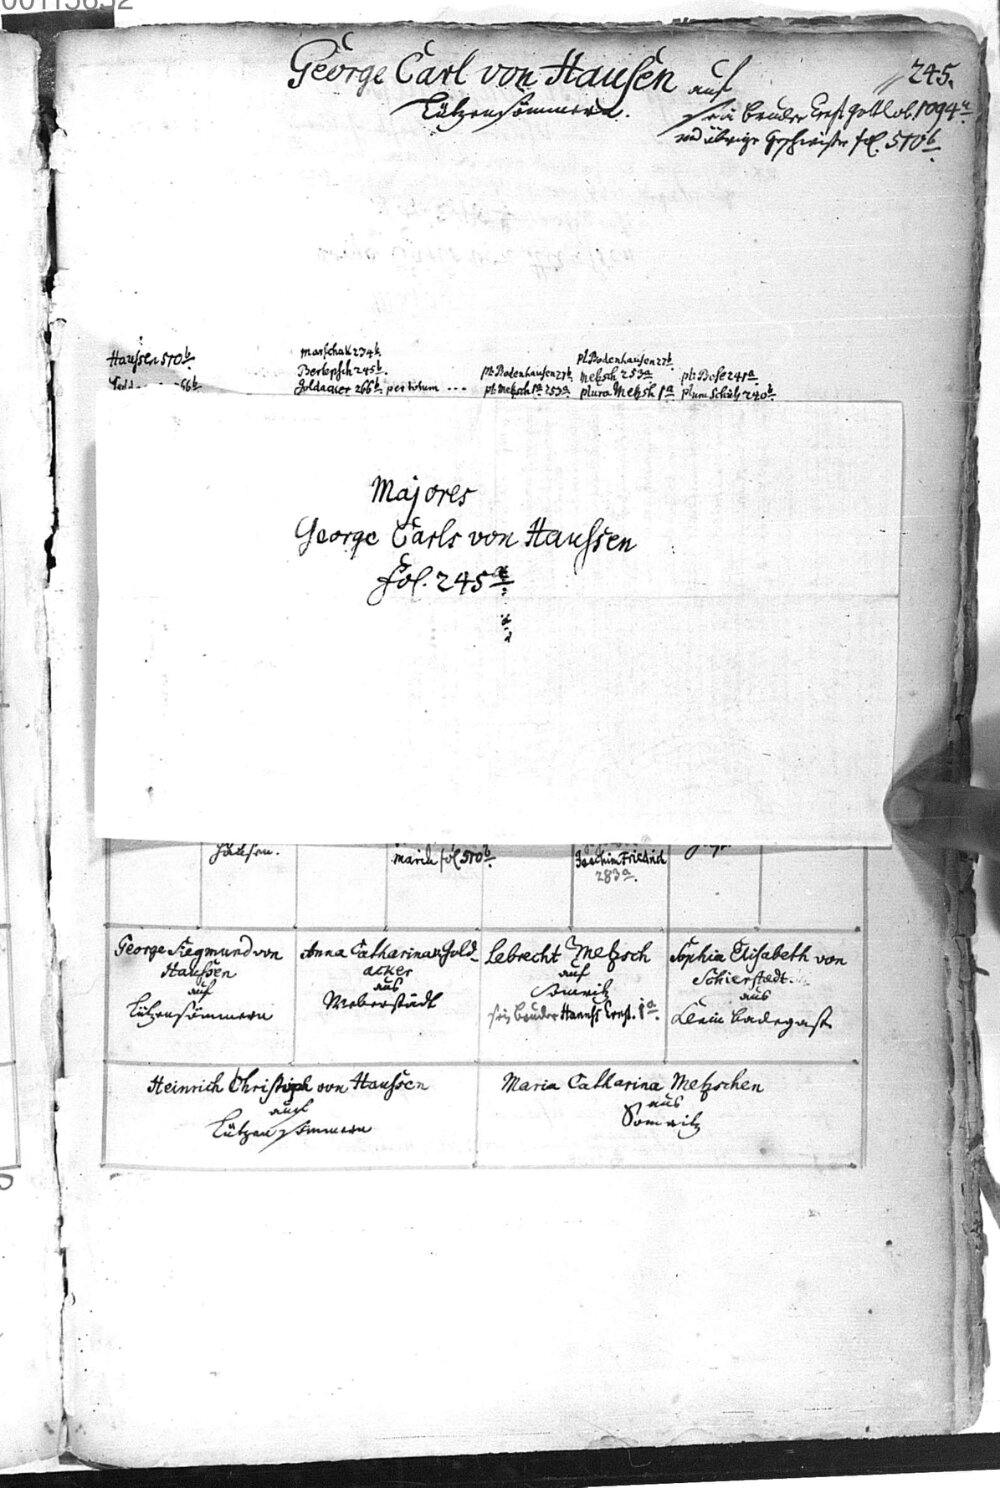 00115652
George Carl von Hausen auf
Lützensömmern.
245.
sein bruder Ernst Gottlob. 1094a.
und übrige Geschwister fol. 510b.
Haussen 510b.
66b.
Marschall 234b.
Berlepsch 245b.
Goldacker 266b. per totum ---
pl. Bodenhausen 27b.
pl. Metzsch 1a. 253a.
pl. Bodenhausen 27b.
Metzsch 253a.
plura Metzsch 1a.
pl. Bose 241a.
plura Schütz 240b.
Majores
George Carls von Haussen
fol. 245a.
Maria fol 510b.
Joachim Friedrich
283a.
George Siegmund von
Haussen
auf
Lützensömmern
Anna Catharina v Gold-
acker
aus
Weberstädt
Lebrecht Metzsch
auf
Somritz
sein bruder Hannss Ernst. 1a.
Sophia Elisabeth von
Schierstedt.
aus
Klein Badegast
Heinrich Christoph von Haussen
auf
Lützensömmern
Maria Catharina Metzschen
aus
Somritz